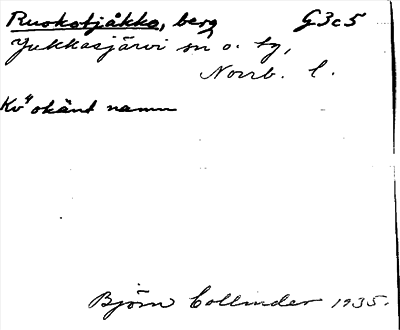 Ruokotjåkko, berg G3c5
Jukkasjärvi sn o. tg,
Norrb. l.
Kv" okänt namn
Björn Collinder 1935.